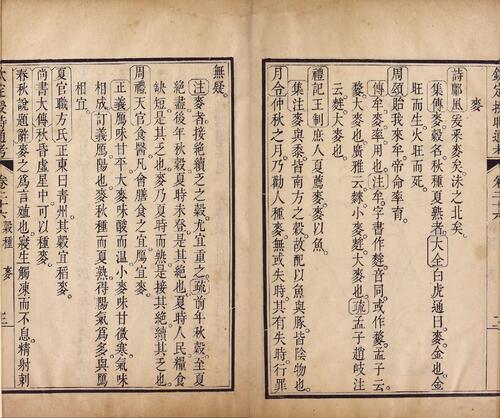 詩鄘風爰采麥矣沬之北矣
集傳麥穀名秋種夏熟者大全白虎通曰麥金也金
旺而生火旺而死
周頌貽我來牟帝命率育
傳牟麥率用也注牟字書作䴨音同或作䵅孟子云
䴨大麥也廣雅云䅘小麥䴨大麥也疏孟子趙岐注
云䴨大麥也
禮記王制庶人夏薦麥麥以魚
集注麥與黍皆南方之穀故配以魚與豚皆陰物也
月令仲秋之月乃勸人種麥無或失時其有失時行罪
無疑
注麥者接絕續乏之穀尤宜重之疏前年秋穀至夏
絕盡後年秋穀夏時未登是其絕也夏時人民糧食
缺短是其乏也麥乃夏時而熟是接其絕續其乏也
周禮天官食醫凡會膳食之宜鴈宜麥
正義鴈味甘平大麥味酸而溫小麥味甘微寒氣味
相成訂義鴈陽也麥秋種而夏熟得陽氣為多與鴈
相宜
夏官職方氏正東曰青州其穀宜稻麥
尚書大傳秋昏虛星中可以種麥
春秋說題辭麥之為言殖也寢生觸凍而不息精射刺
欽定授時通考 卷二十六 穀種 麥 三